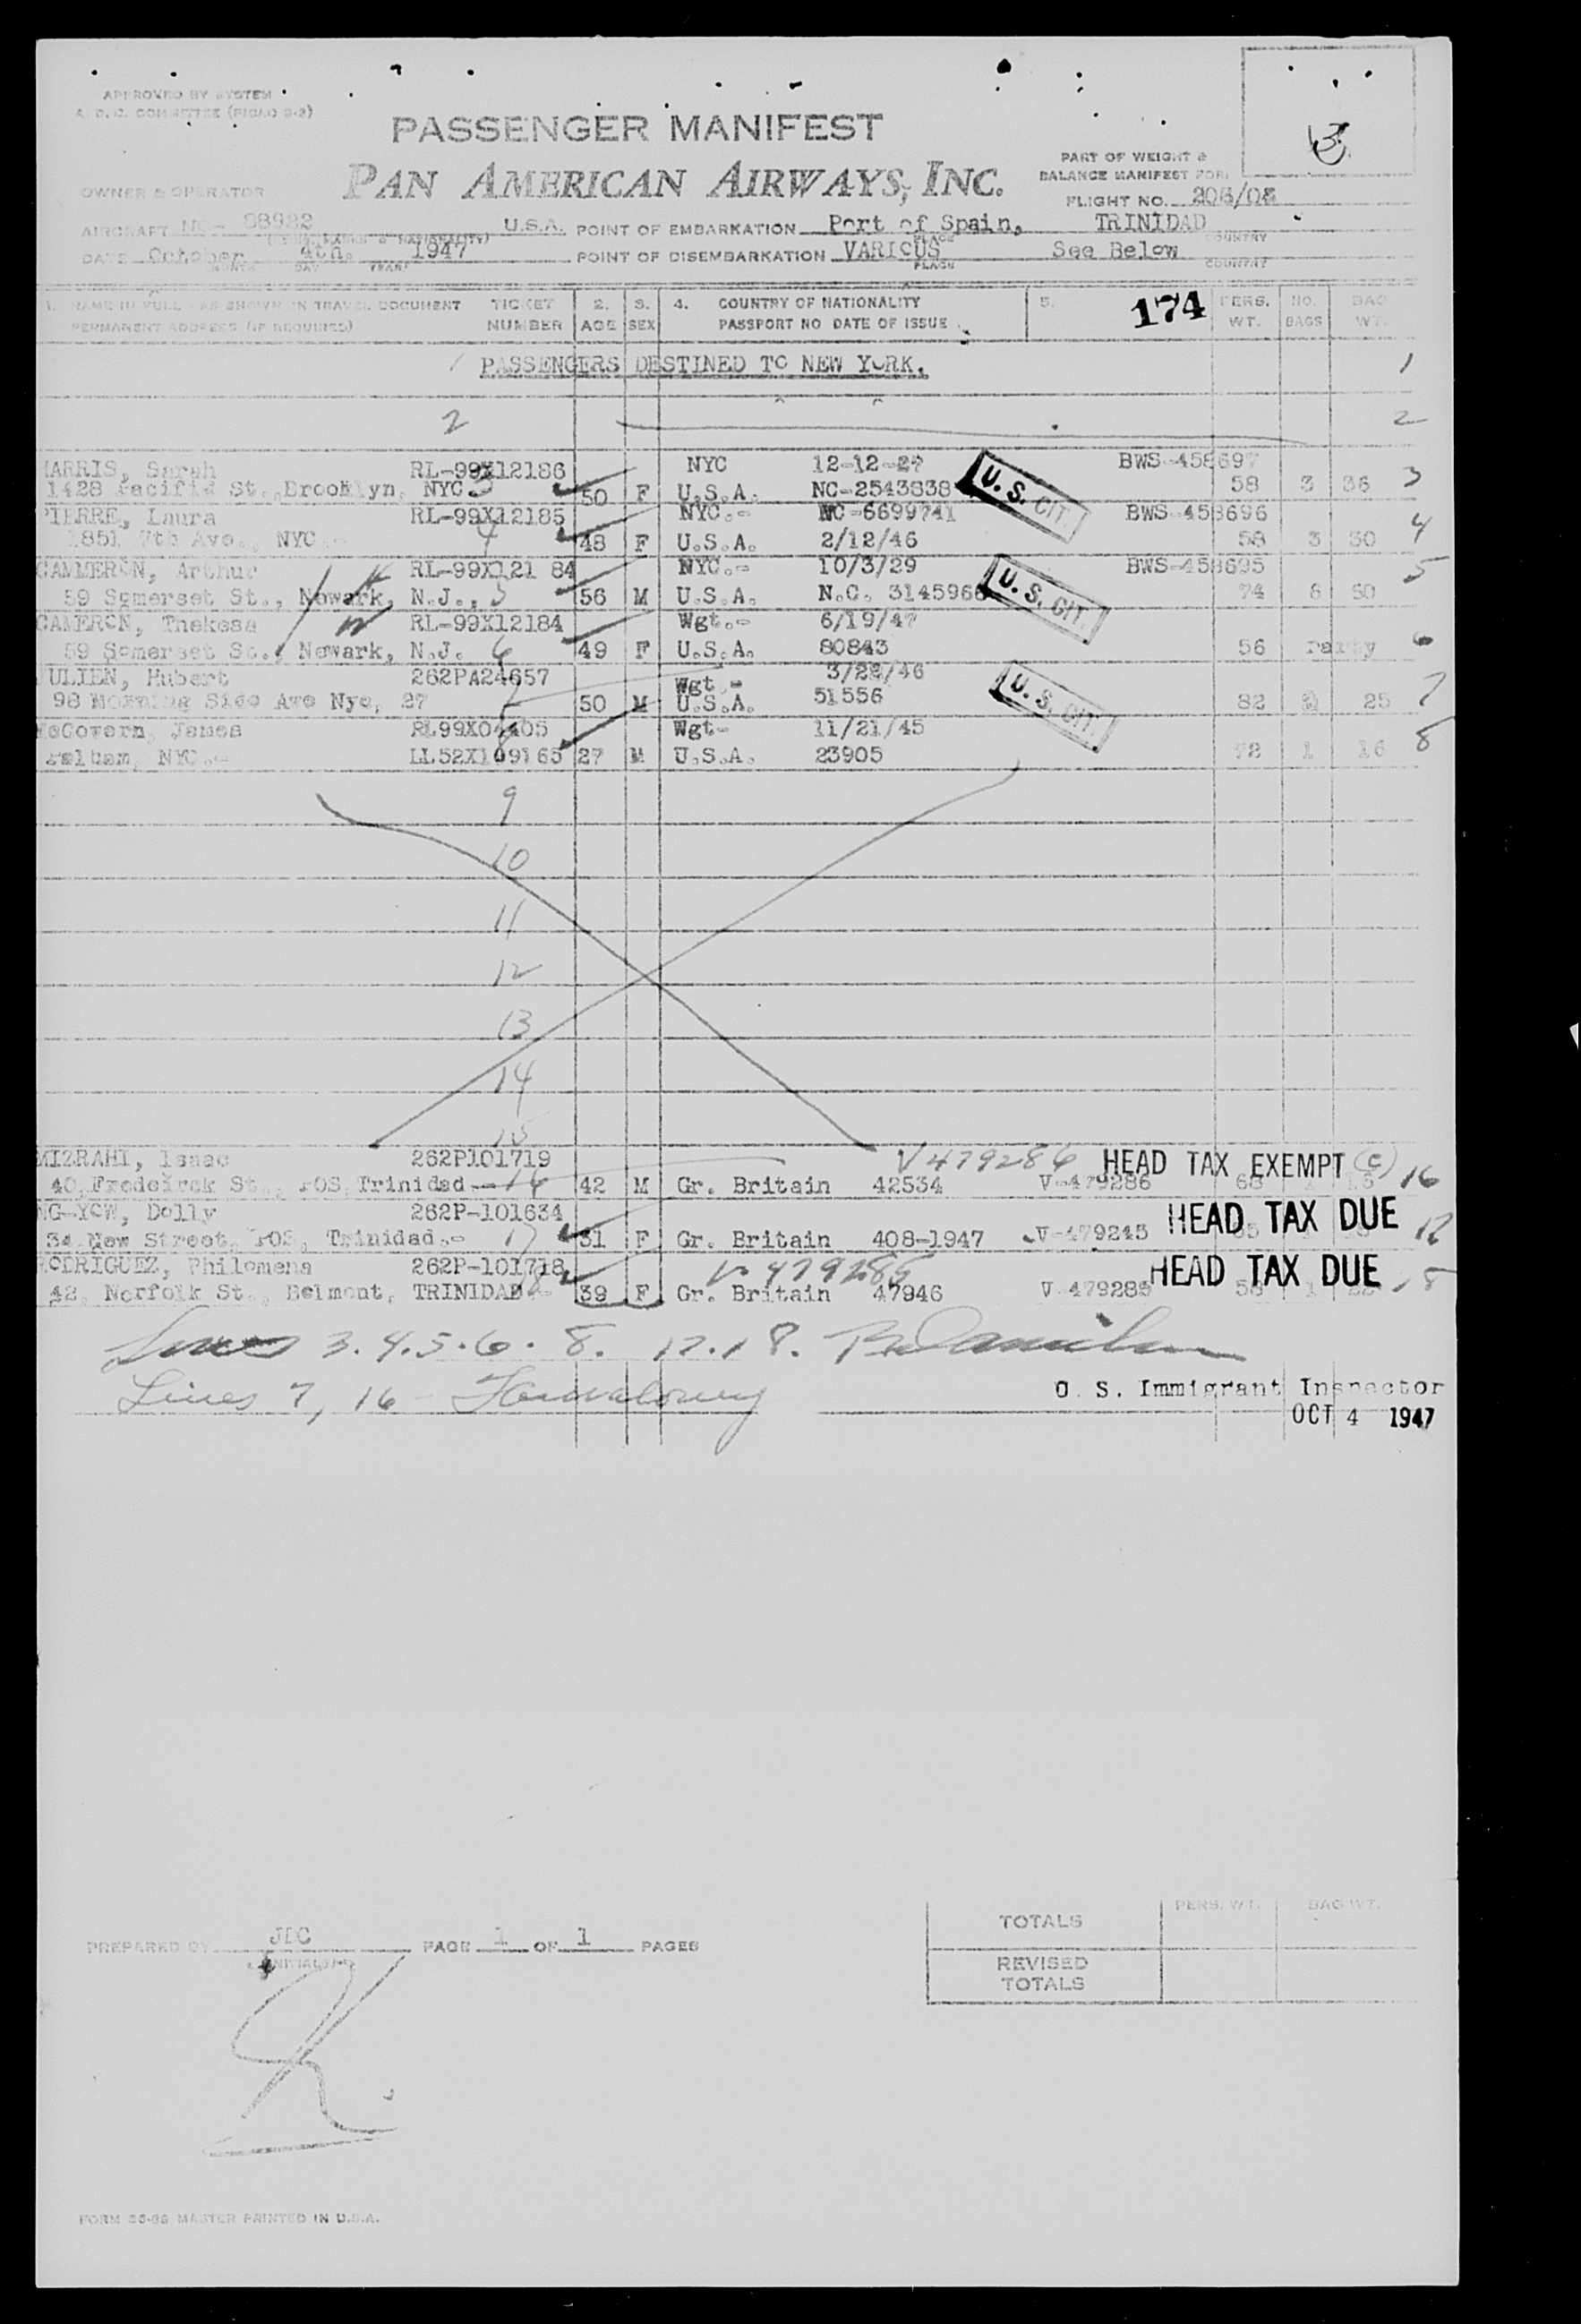 APPROVED BY SYSTEM
A.D.C. COMMITTEE
PASSENGER MANIFEST
PAN AMERICAN AIRWAYS, INC.
OWNER & OPERATOR
PART OF WEIGHT &
BALANCE MANIFEST FOR:
FLIGHT NO.
AIRCRAFT NC- 88922 U.S.A. POINT OF EMBARKATION Port of Spain, TRINIDAD
PLACE COUNTRY
DATE October 4th. 1947 POINT OF DISEMBARKATION VARIOUS See Below
MONTH DAY YEAR PLACE COUNTRY
1. NAME IN FULL AS SHOWN IN TRAVEL DOCUMENT TICKET 2. 3. 4. COUNTRY OF NATIONALITY 5. 174 PERS. NO. BAG
PERMANENT ADDRESS (IF REQUIRED) NUMBER AGE SEX PASSPORT NO DATE OF ISSUE WT. BAGS WT.
PASSENGERS DESTINED TO NEW YORK. 1
2 2
HARRIS, Sarah RL-99X12186 NYC 12-12-27 BWS-458697
1428 Pacific St., Brooklyn, NYC 3 50 F U.S.A. NC-2543838 U.S. CIT. 58 3 36 3
PIERRE, Laura RL-99X12185 NYC.- NC-6699741 BWS-458696
1851 7th Ave., NYC.- 4 48 F U.S.A. 2/12/46 58 3 50 4
CAMMERON, Arthur RL-99X121 84 NYC.- 10/3/29 BWS-458695
59 Somerset St., Newark, N.J., 5 56 M U.S.A. N.C. 3145966 U.S. CIT. 74 6 50 5
CAMERON, Thekesa RL-99X12184 Wgt.- 6/19/47
59 Somerset St., Newark, N.J. 6 49 F U.S.A. 80843 56 Party 6
JULIEN, Hubert 262PA24657 Wgt.- 3/22/46
98 Morning Side Ave Nyc, 27 7 50 M U.S.A. 51556 U.S. CIT. 82 2 25 7
McGovern, James RL99X04405 Wgt- 11/21/45
Pelham, NYC.- LL52X109165 8 27 M U.S.A. 23905 72 1 16 8
9
10
11
12
13
14
15
MIZRAHI, Isaac 262P101719 V479286 HEAD TAX EXEMPT (C)
40, Fredeirck St., POS, Trinidad.- 16 42 M Gr. Britain 42534 V-479286 68 16
NG-YOW, Dolly 262P-101634 HEAD TAX DUE
34 New Street, POS, Trinidad.- 17 31 F Gr. Britain 408-1947 V-479245 17
RODRIGUEZ, Philomena 262P-101718 V. 479285 HEAD TAX DUE
42, Norfolk St., Belmont, TRINIDAD.- 18 39 F Gr. Britain 47946 V 479285 18
Lines 3.4.5.6. 8. 17.18.
Lines 7, 16
U. S. Immigrant Inspector
OCT 4 1947
PERS. WT. BAG WT.
TOTALS
REVISED
TOTALS
PREPARED BY JDC PAGE 1 OF 1 PAGES
(INITIALS)
FORM MASTER PRINTED IN U.S.A.